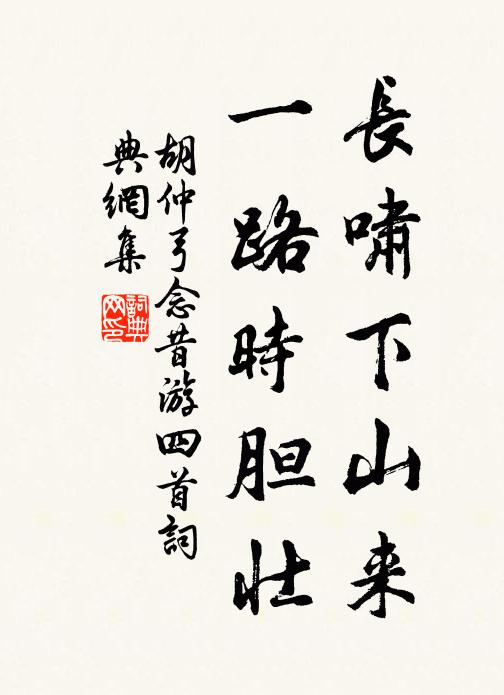 長嘯下山来
一路時胆壮
胡仲弓念昔游四首詞
典網集
詞典网印